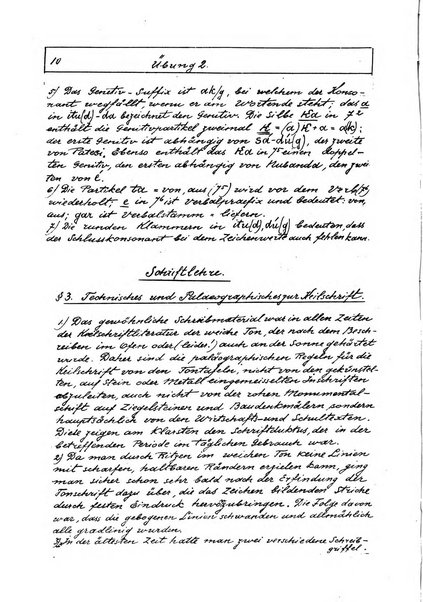 10
Übung 2.
5) Das Genitiv-Suffix ist ak/g, bei welchem der Konso-
nant wegfällt, wenn er am Wortende steht; das a
in itu(d)-da bezeichnet den Genitiv. Die Silbe Ka in 7²
enthält die Genitivpartikel zweimal K = (a)K + a = a(k);
der erste Genitiv ist abhängig von Sa-dú(g), des zweite
von Patesi. Ebenso enthält das Ka in 7⁵ einen doppel-
ten Genitiv, den ersten abhängig von Kubanda, den zwei-
ten von
6) Die Partikel ta = von, aus (7⁵) wird vor dem Verb
wiederholt. e in 7⁶ ist Verbalpraefix und bedeutet: von,
aus; gar ist Verbalstamm = liefern.
7) Die runden Klammern in itu(d), dú(g) bedeuten, dass
der Schlusskonsonant bei dem Zeichenwert auch fehlen kann.
Schriftlehre.
§ 3. Technisches und Palaeographisches zur Keilschrift.
1) Das gewöhnliche Schreibmaterial war in alten Zeiten
der Keilschriftliteratur der weiche Ton, der nach dem Besch-
reiben im Ofen oder (leider!) auch an der Sonne gehärtet
wurde. Daher sind die paläographischen Regeln für die
Keilschrift von den Tontafeln, nicht von den gekünstel-
ten, auf Stein oder Metall eingemeisselten Inschriften
abzuleiten, auch nicht von der rohen Monumental-
schrift auf Ziegelsteinen und Baudenkmälern sondern
hauptsächlich von den Wirtschafts- und Schultexten.
Diese zeigen am klarsten den Schriftduktus, der in der
betreffenden Periode im täglichen Gebrauch war.
2) Da man durch Ritzen im weichen Ton keine Linien
mit scharfen, haltbaren Rändern erzielen kann, ging
man sicher schon sehr bald nach der Erfindung der
Tonschrift dazu über, die das Zeichen bildenden Striche
durch festen Eindruck hervorzubringen. Die Folge davon
war, dass die gebogenen Linien schwanden und allmählich
alle gradlinig wurden.
3) In der ältesten Zeit hatte man zwei verschiedene Schreib-
griffel.